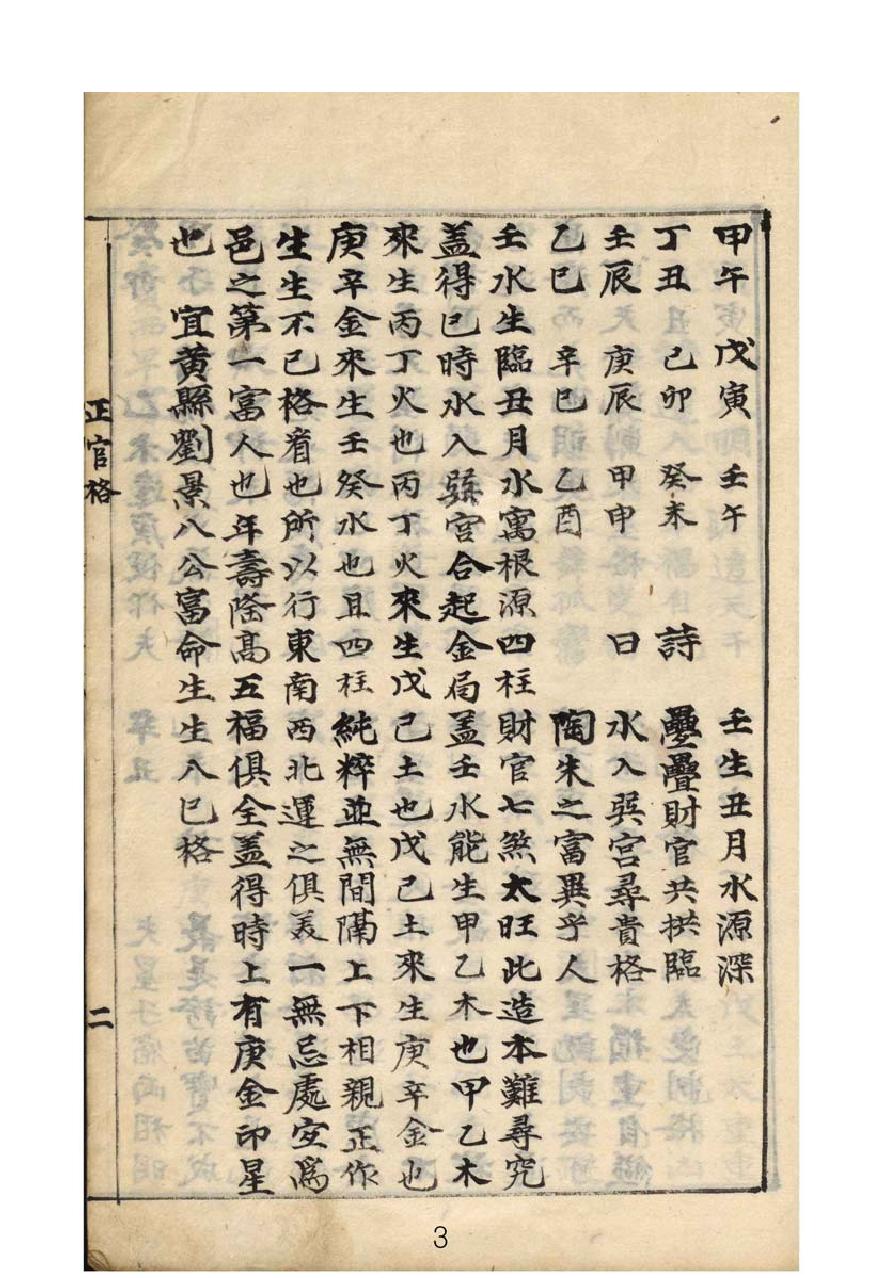 甲午 戊寅 壬午 壬生丑月水源深
丁丑 己卯 癸未 詩 疊疊財官共拱臨
壬辰 庚辰 甲申 曰 水入巽宮尋貴格
乙巳 辛巳 乙酉 陶朱之富異乎人
壬水生臨丑月水寓根源四柱財官七煞太旺此造本難尋究
盖得巳時水入巽宮合起金局盖壬水能生甲乙木也甲乙木
來生丙丁火也丙丁火來生戊己土也戊己土來生庚辛金也
庚辛金來生壬癸水也且四柱純粹並無間隔上下相親正作
生生不已格看也所以行東南西北運之俱美一無忌處安爲
邑之第一富人也年壽隆高五福俱全盖得時上有庚金印星
也 宜黃縣劉景八公富命生生八巳格
正官格 二
3